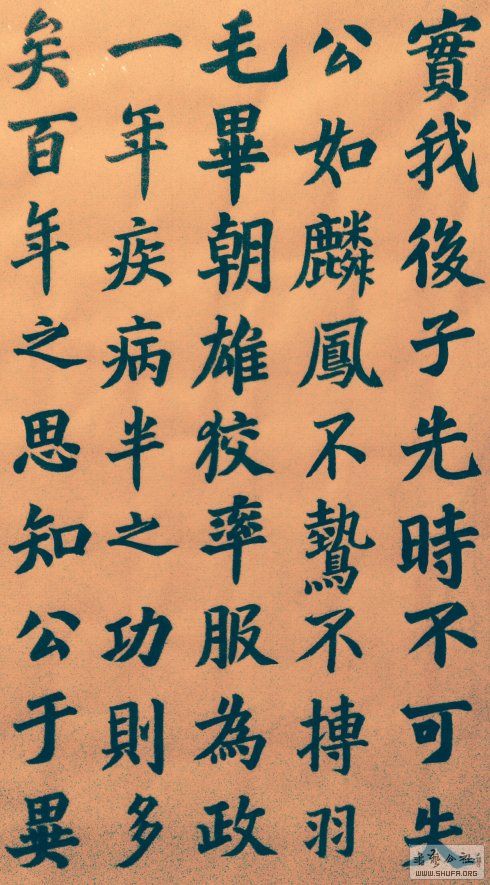 實我後子先時不可失
公如麟鳳不鷙不搏羽
毛畢朝雄狡率服為政
一年疾病半之功則多
矣百年之思知公于異
WWW.SHUFA.ORG